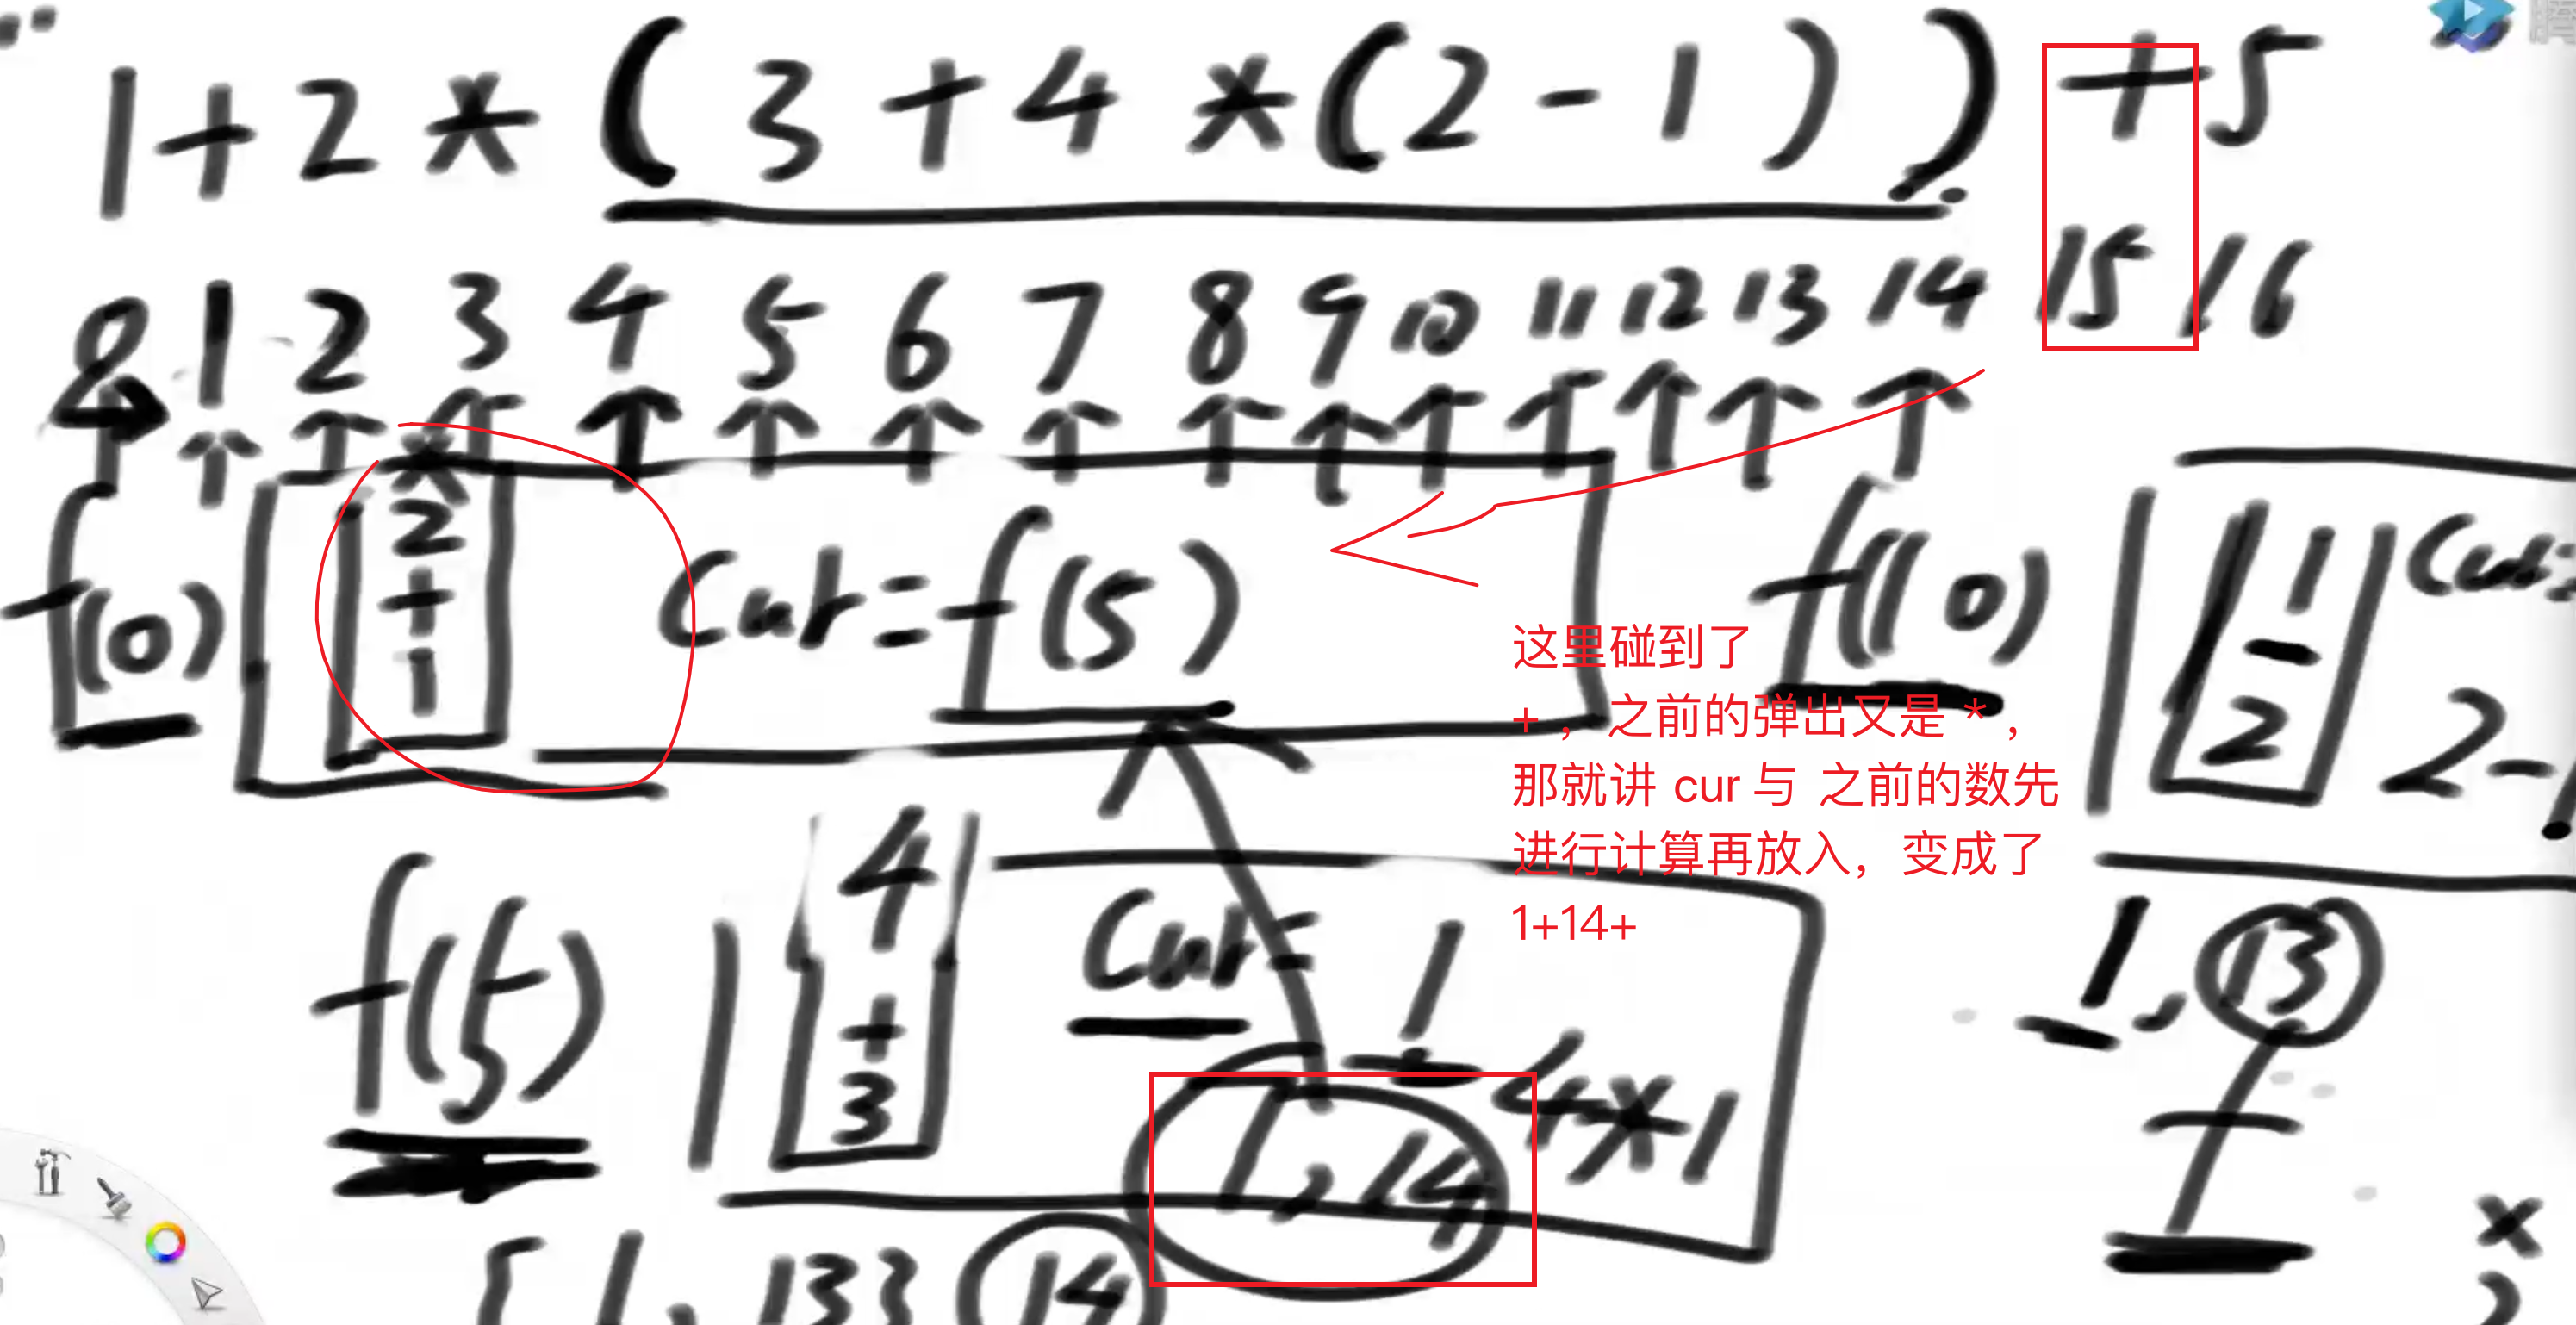 1+2*(3+4*(2-1))+5
0 1 2 3 4 5 6 7 8 9 10 11 12 13 14 15 16
f(0)
*
2
+
1
Cur=f(5)
f(10)
1
-
2
Cur=
2-1
这里碰到了
+，之前的弹出又是 *，
那就讲 cur 与 之前的数先
进行计算再放入，变成了
1+14+
f(5)
4
+
3
Cur= 1
4*1
7,14
1,13
{1,13} 14